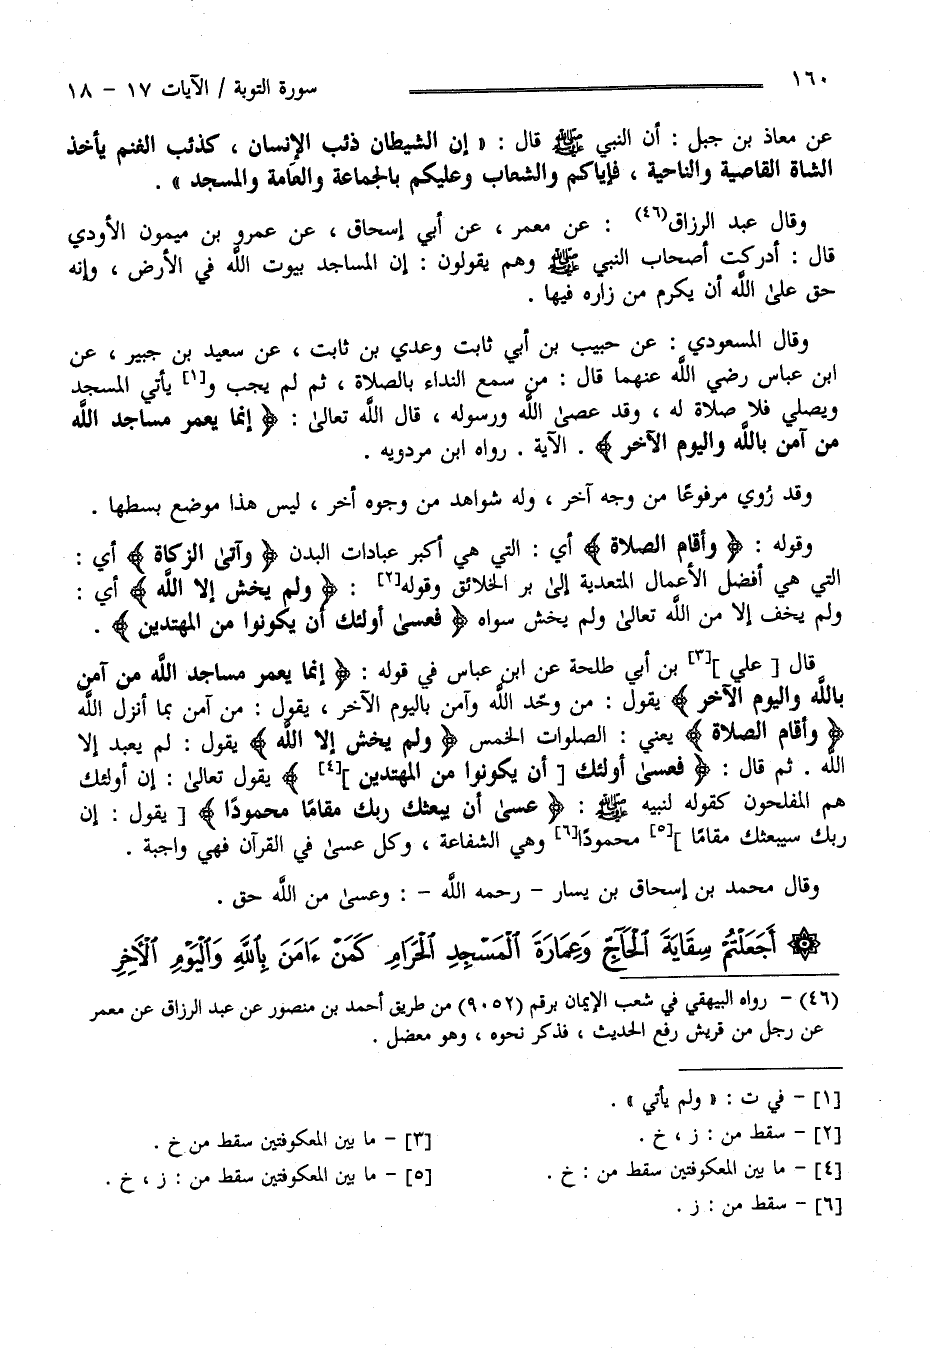 ١٦٠ سورة التوبة / الآيات ١٧ - ١٨
عن معاذ بن جبل : أن النبي ﷺ قال : « إن الشيطان ذئب الإنسان ، كذئب الغنم يأخذ
الشاة القاصية والناحية ، فإياكم والشعاب وعليكم بالجماعة والعامة والمسجد » .
وقال عبد الرزاق(٤٦) : عن معمر ، عن أبي إسحاق ، عن عمرو بن ميمون الأودي
قال : أدركت أصحاب النبي ﷺ وهم يقولون : إن المساجد بيوت اللَّه في الأرض ، وإنه
حق علىٰ اللَّه أن يكرم من زاره فيها .
وقال المسعودي : عن حبيب بن أبي ثابت وعدي بن ثابت ، عن سعيد بن جبير ، عن
ابن عباس رضي اللَّه عنهما قال : من سمع النداء بالصلاة ، ثم لم يجب و[١] يأتي المسجد
ويصلي فلا صلاة له ، وقد عصىٰ اللَّه ورسوله ، قال اللَّه تعالىٰ : ﴿ إنما يعمر مساجد اللَّه
من آمن باللَّه واليوم الآخر ﴾ . الآية . رواه ابن مردويه .
وقد رُوي مرفوعًا من وجه آخر ، وله شواهد من وجوه أخر ، ليس هذا موضع بسطها .
وقوله : ﴿ وأقام الصلاة ﴾ أي : التي هي أكبر عبادات البدن ﴿ وآتىٰ الزكاة ﴾ أي :
التي هي أفضل الأعمال المتعدية إلىٰ بر الخلائق وقوله[٢] : ﴿ ولم يخش إلا اللَّه ﴾ أي :
ولم يخف إلا من اللَّه تعالىٰ ولم يخش سواه ﴿ فعسىٰ أولئك أن يكونوا من المهتدين ﴾ .
قال [ علي ][٣] بن أبي طلحة عن ابن عباس في قوله : ﴿ إنما يعمر مساجد اللَّه من آمن
باللَّه واليوم الآخر ﴾ يقول : من وحّد اللَّه وآمن باليوم الآخر ، يقول : من آمن بما أنزل اللَّه
﴿ وأقام الصلاة ﴾ يعني : الصلوات الخمس ﴿ ولم يخش إلا اللَّه ﴾ يقول : لم يعبد إلا
اللَّه . ثم قال : ﴿ فعسىٰ أولئك [ أن يكونوا من المهتدين ][٤] ﴾ يقول تعالىٰ : إن أولئك
هم المفلحون كقوله لنبيه ﷺ : ﴿ عسىٰ أن يبعثك ربك مقامًا محمودًا ﴾ [ يقول : إن
ربك سيبعثك مقامًا ][٥] محمودًا[٦] وهي الشفاعة ، وكل عسىٰ في القرآن فهي واجبة .
وقال محمد بن إسحاق بن يسار - رحمه اللَّه - : وعسىٰ من اللَّه حق .
۞ أَجَعَلْتُمْ سِقَايَةَ الْحَآجِّ وَعِمَارَةَ الْمَسْجِدِ الْحَرَامِ كَمَنْ ءَامَنَ بِاللَّهِ وَالْيَوْمِ الْآخِرِ
(٤٦) - رواه البيهقي في شعب الإيمان برقم (٩٠٥٢) من طريق أحمد بن منصور عن عبد الرزاق عن معمر
عن رجل من قريش رفع الحديث ، فذكر نحوه ، وهو معضل .
[١] - في ت : « ولم يأتي » .
[٢] - سقط من : ز ، خ . [٣] - ما بين المعكوفتين سقط من خ .
[٤] - ما بين المعكوفتين سقط من : خ . [٥] - ما بين المعكوفتين سقط من : ز ، خ .
[٦] - سقط من : ز .